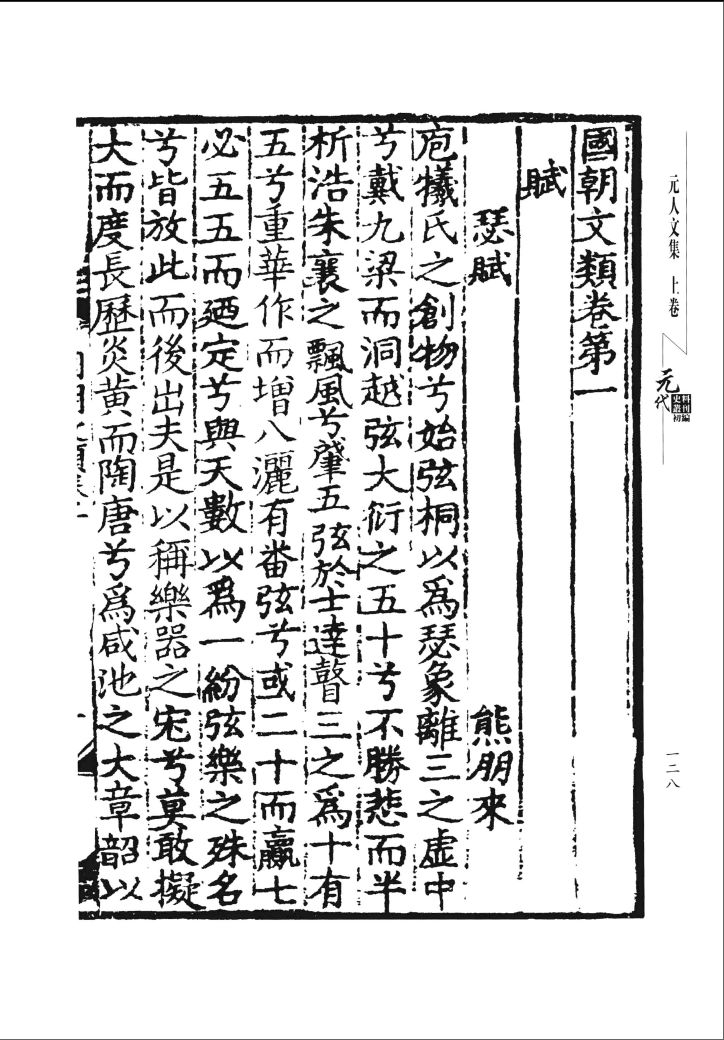 元人文集 上卷
元代
史料叢刊初編
一二八
國朝文類卷第一
賦
瑟賦 熊朋來
庖犧氏之創物兮始弦桐以為瑟象離三之虛中
兮戴九梁而洞越弦大衍之五十兮不勝悲而半
析浩朱襄之飄風兮肇五弦於士達瞽三之為十有
五兮重華作而增八灑有番弦兮或二十而贏七
必五五而廼定兮與天數以為一紛弦樂之殊名
兮皆放此而後出夫是以稱樂器之宋兮莫敢擬
大而度長歷炎黃而陶唐兮為咸池之大章韶以